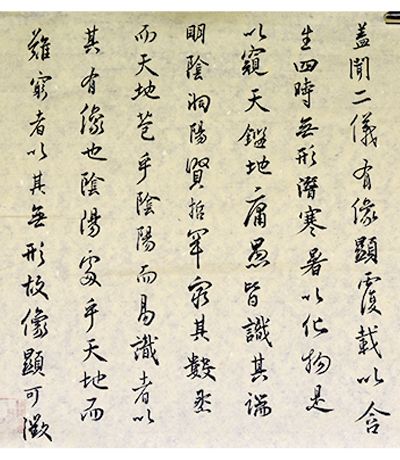 蓋聞二儀有像顯覆載以含
生四時無形潛寒暑以化物是
以窺天鑑地庸愚皆識其端
明陰洞陽賢哲罕窮其數然
而天地苞乎陰陽而易識者以
其有像也陰陽處乎天地而
難窮者以其無形故像顯可徵